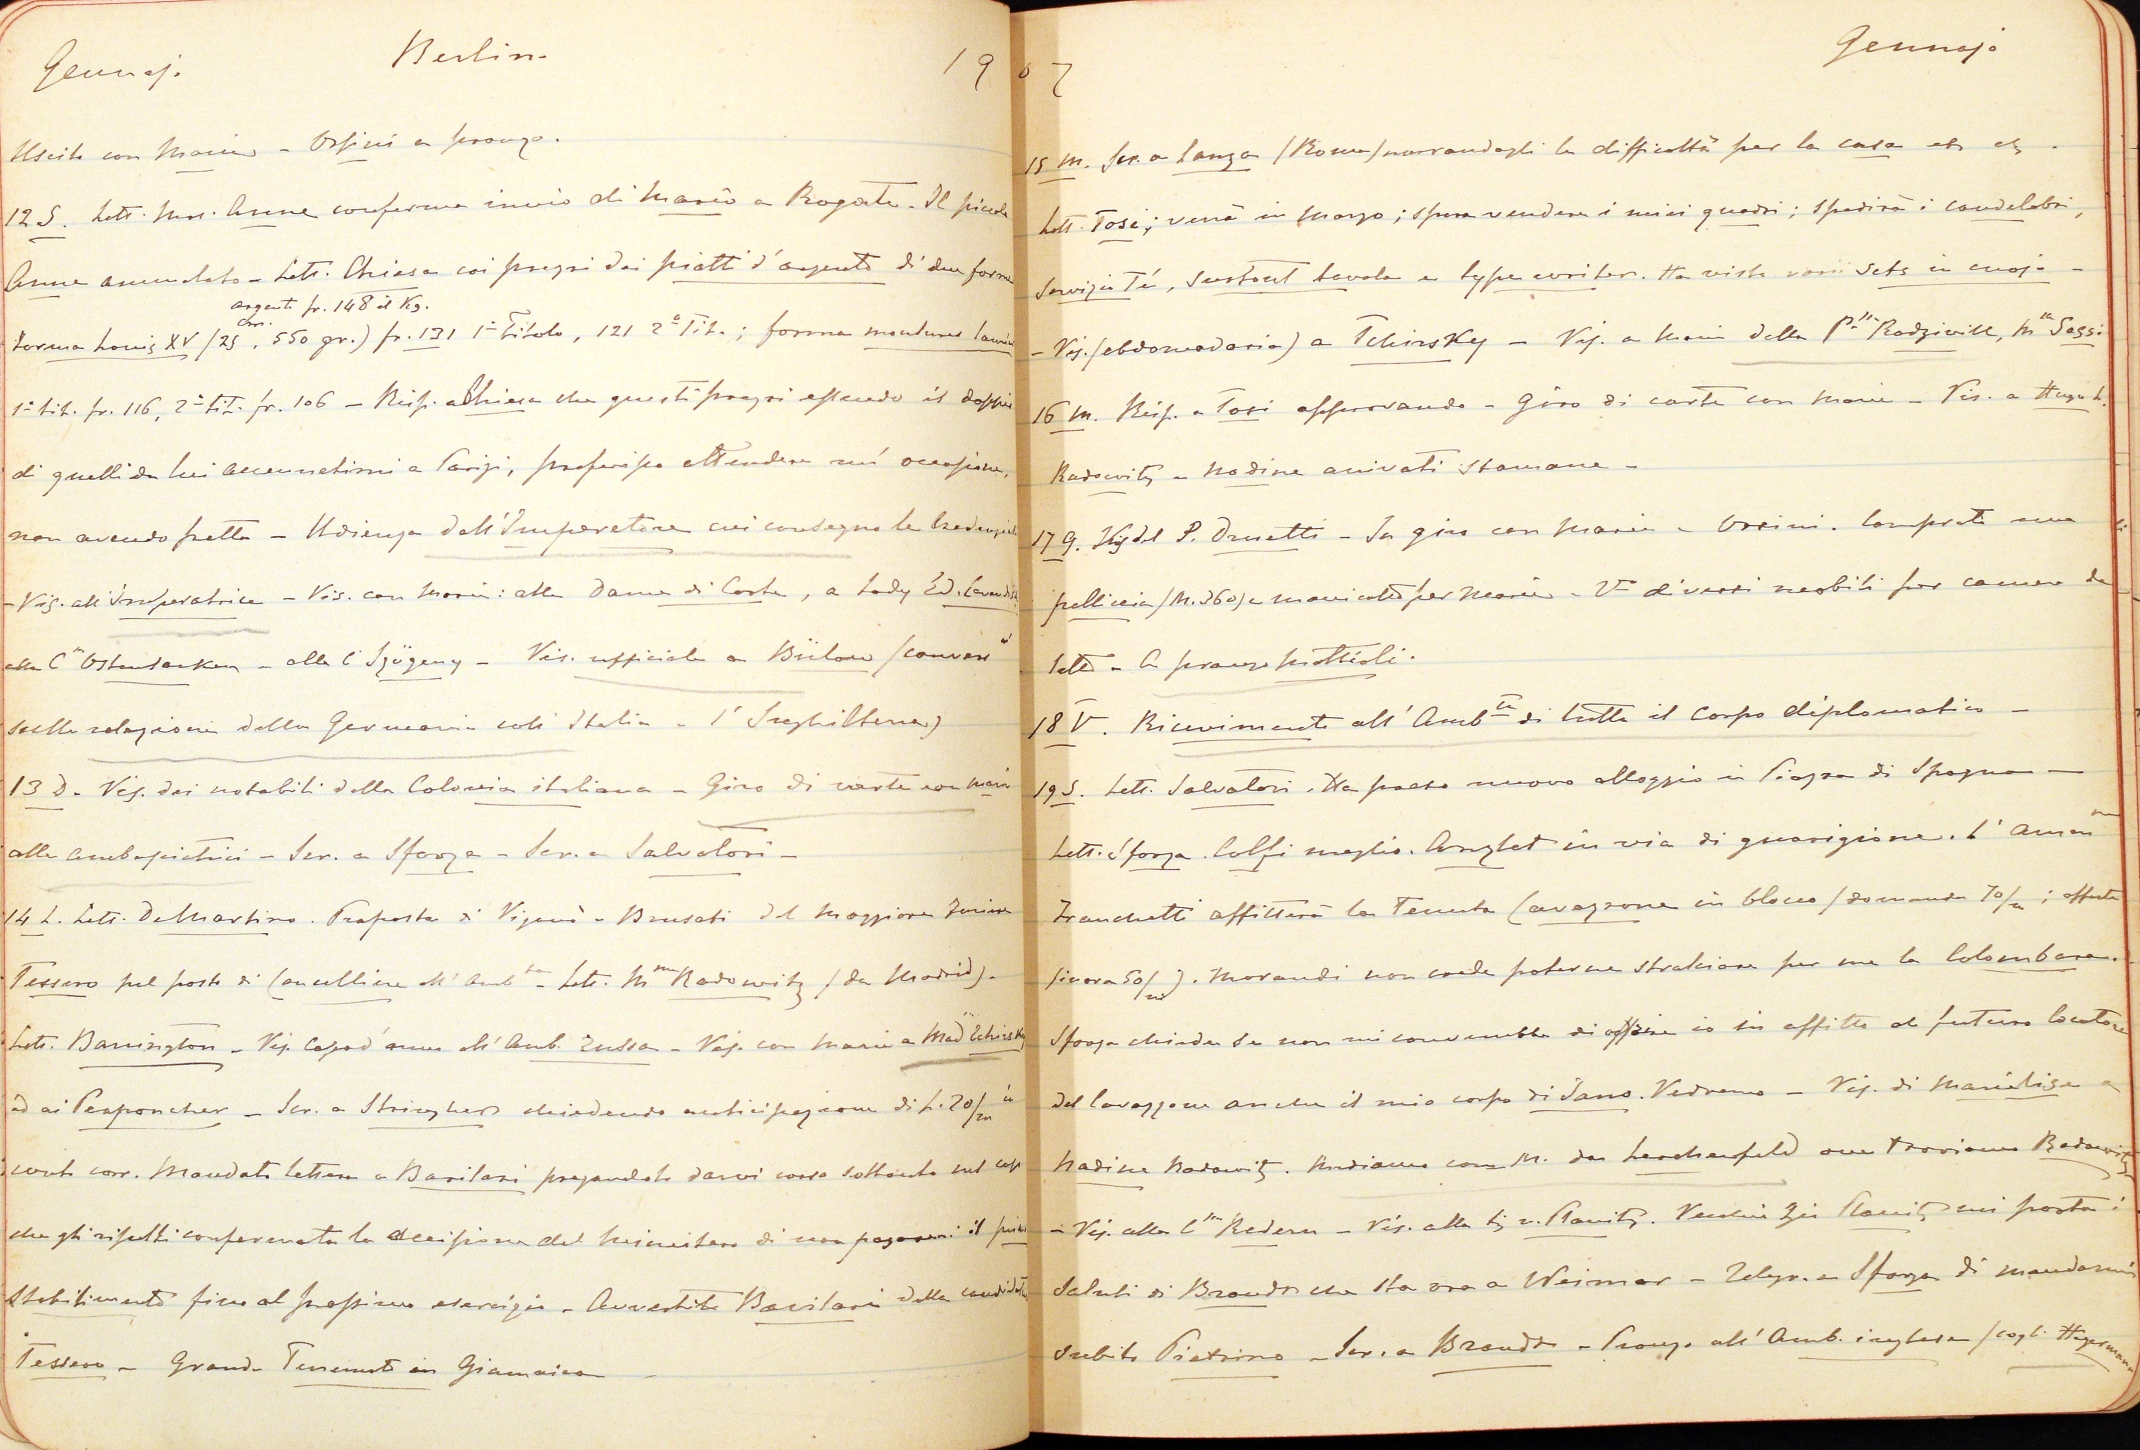 Gennajo Berlino 1907 Gennajo
Uscito con Maria – Orsini a pranzo.
12 S. Lett. Mrs. Anne conferma invio di Mario a Rogate. Il piccolo
Anne ammalato – Lett. Chiesa coi prezzi dei piatti d'argento di due forme
argento fr. 148 il Kg.
Forma Louis XV (25 cm., 550 gr.) fr. 131 1° Titolo, 121 2° Tit.; forma moulures
1° tit. fr. 116, 2° tit. fr. 106 – Risp. a Chiesa che questi prezzi essendo il doppio
di quelli da lui accennatimi a Parigi, preferisco attendere un'occasione,
non avendo fretta – Udienza dall'Imperatore cui consegno le
– Vis. all'Imperatrice – Vis. con Maria: alle Dame di Corte, a Lady Ed. Cavendish
alla C.sa Ostensacken – alla C. Szögeny – Vis. ufficiale a Bülow (convers.
sulle relazioni della Germania coll'Italia e l'Inghilterra)
13 D. Vis. dei notabili della Colonia italiana – Giro di carte con Maria
alle ambasciatrici – Scr. a Sforza – Scr. a Salvatori –
14 L. Lett. De Martino. Proposta di Viganò e Brusati del Maggiore
Tessero pel posto di Cancelliere all'Amb.ta – Lett. M.me Radowitz (da Madrid) –
Lett. Barrington – Vis. Capod'anno all'Amb. Russa – Vis. con Maria a Mad. Tchirsky
ed ai Perponcher – Scr. a Stringher chiedendo anticipazione di L. 20/m in
conto corr. Mandata lettera a Barilari pregandolo darvi corso soltanto nel caso
che gli risulti confermata la decisione del Ministero di non pagarmi il primo
Stabilimento fino al prossimo esercizio – Avvertito Barilari della candidatura
Tessero – Grande Terremoto in Giamaica
15 M. Scr. a Lanza (Roma) narrandogli le difficoltà per la casa etc etc.
Lett. Tosi; verrà in Marzo; spera vendere i miei quadri; spedirà i candelabri,
Servizio Té, Surtout tavola e type writer. Ha visto varii sets in cuojo –
– Vis. (ebdomadaria) a Tchirsky – Vis. a Maria della P.ssa Radziwill, M.sa Sassi
16 M. Risp. a Tosi approvando – Giro di carte con Maria – Vis. a Hugo L.
Radowitz e Nadine arrivati stamane –
17 G. Vis. del P. Drusetti – In giro con Maria e Orsini. Comprata una
pelliccia (M. 360) e manicotto per Maria – V. diversi mobili per camera da
letto – A pranzo Mattioli.
18 V. Ricevimento all'Amb.ta di tutto il Corpo diplomatico –
19 S. Lett. Salvatori. Ha preso nuovo alloggio in Piazza di Spagna –
Lett. Sforza. Colfi meglio. Anglet in via di guarigione. L'Amm.ne
Franchetti affitterà la Tenuta Cavazzone in blocco (domanda 70/m; offerta
finora 50/m). Morandi non crede poterne stralciare per me la Colombara.
Sforza chiede se non mi converrebbe di offrire io in affitto al futuro locatore
del Cavazzone anche il mio corpo di Sano. Vedremo – Vis. di Marielise e
Nadine Radowitz. Andiamo con M. da Lerchenfeld ove troviamo Radowitz
– Vis. alla C.ssa Redern – Vis. alla v. Planitz. Planitz mi porta i
saluti di Brandt che sta ora a Weimar – Telegr. a Sforza di mandarmi
subito Pietrino – Scr. a Brandt – Pranzo all'Amb. inglese (cogli Hegermann